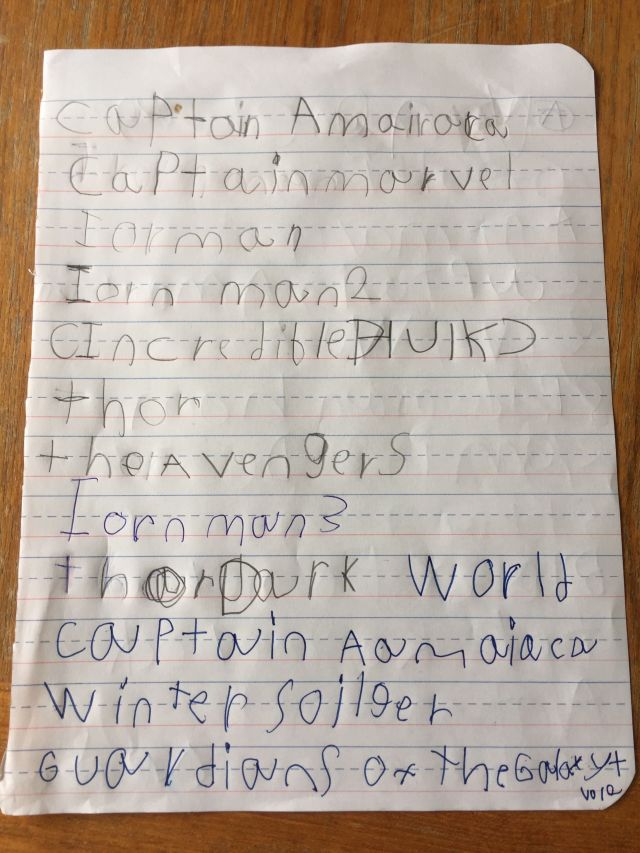 Captain Amairaca
Captain marvel
Iorman
Iorn man2
CIncredible HULK
thor
the Avengers
Iorn man3
thor Dark World
Captain Aamaiaca
Winter Soilder
Guardians of the Galaxy